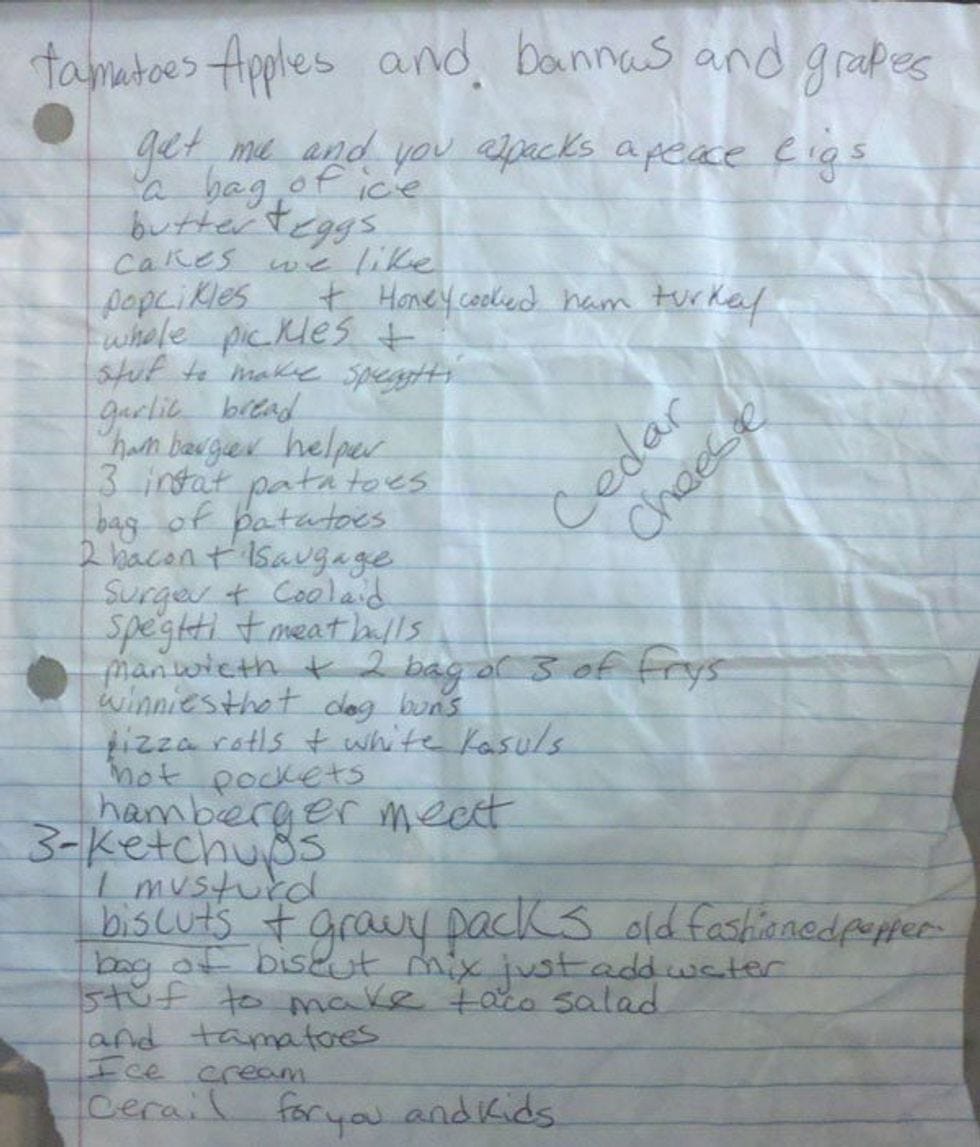 tamatoes Apples and bannas and grapes
get me and you a 2packs a peace cigs
a bag of ice
butter + eggs
cakes we like
popcikles + Honey cooked ham turkey
whole pickles +
stuf to make spegtti
garlic bread
hamberger helper
Cedar
Cheese
3 intat patatoes
bag of patatoes
2 bacon + 1 saugage
surger + Coolaid
spegtti + meat balls
manwicth + 2 bag or 3 of frys
winnies + hot dog buns
pizza rolls + white Kasuls
hot pockets
hamberger meat
3- ketchups
1 musturd
biscuts + gravy packs old fashioned pepper
bag of biscut mix just add water
stuf to make taco salad
and tamatoes
Ice cream
Cerail for you and kids